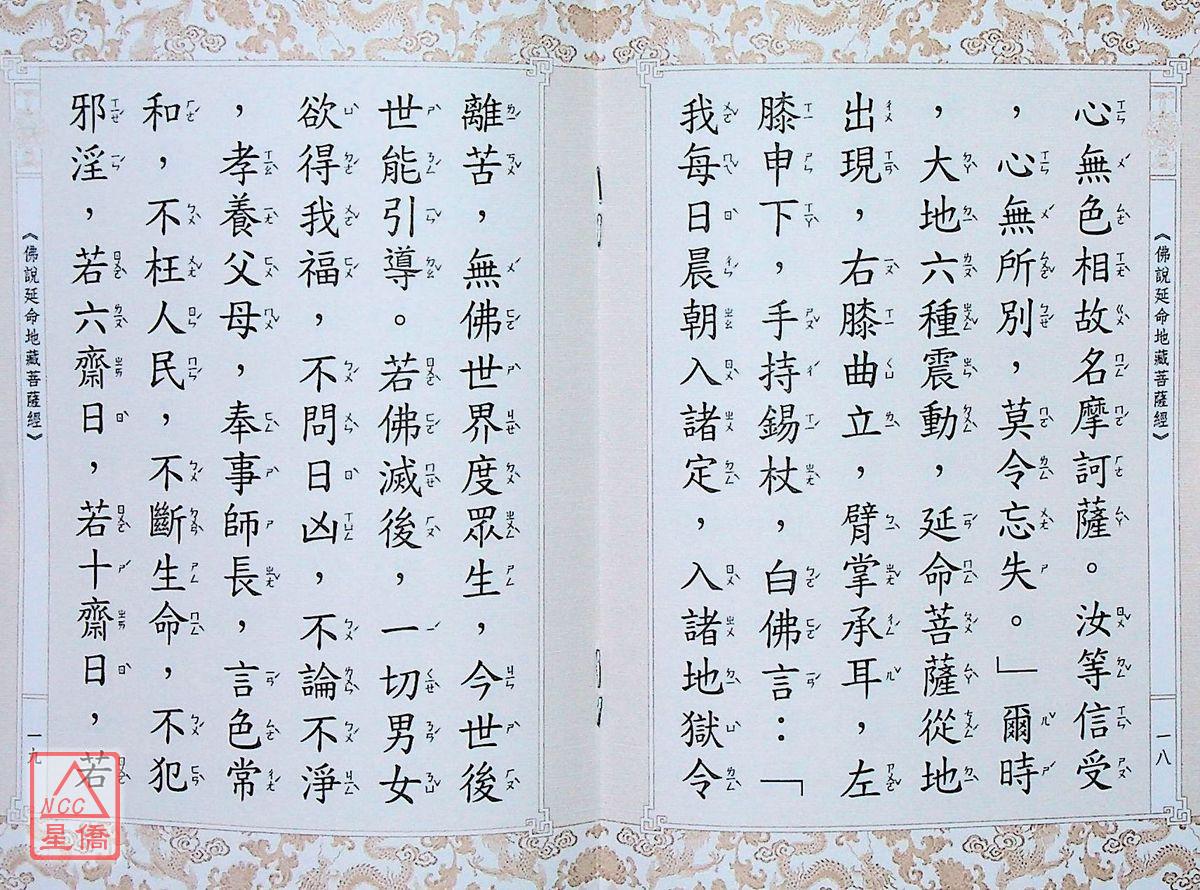 《佛說延命地藏菩薩經》
一八
心無色相故名摩訶薩。汝等信受
，心無所別，莫令忘失。」爾時
，大地六種震動，延命菩薩從地
出現，右膝曲立，臂掌承耳，左
膝申下，手持錫杖，白佛言：「
我每日晨朝入諸定，入諸地獄令
離苦，無佛世界度眾生，今世後
世能引導。若佛滅後，一切男女
欲得我福，不問日凶，不論不淨
，孝養父母，奉事師長，言色常
和，不枉人民，不斷生命，不犯
邪淫，若六齋日，若十齋日，若
《佛說延命地藏菩薩經》
一九
NCC
星僑